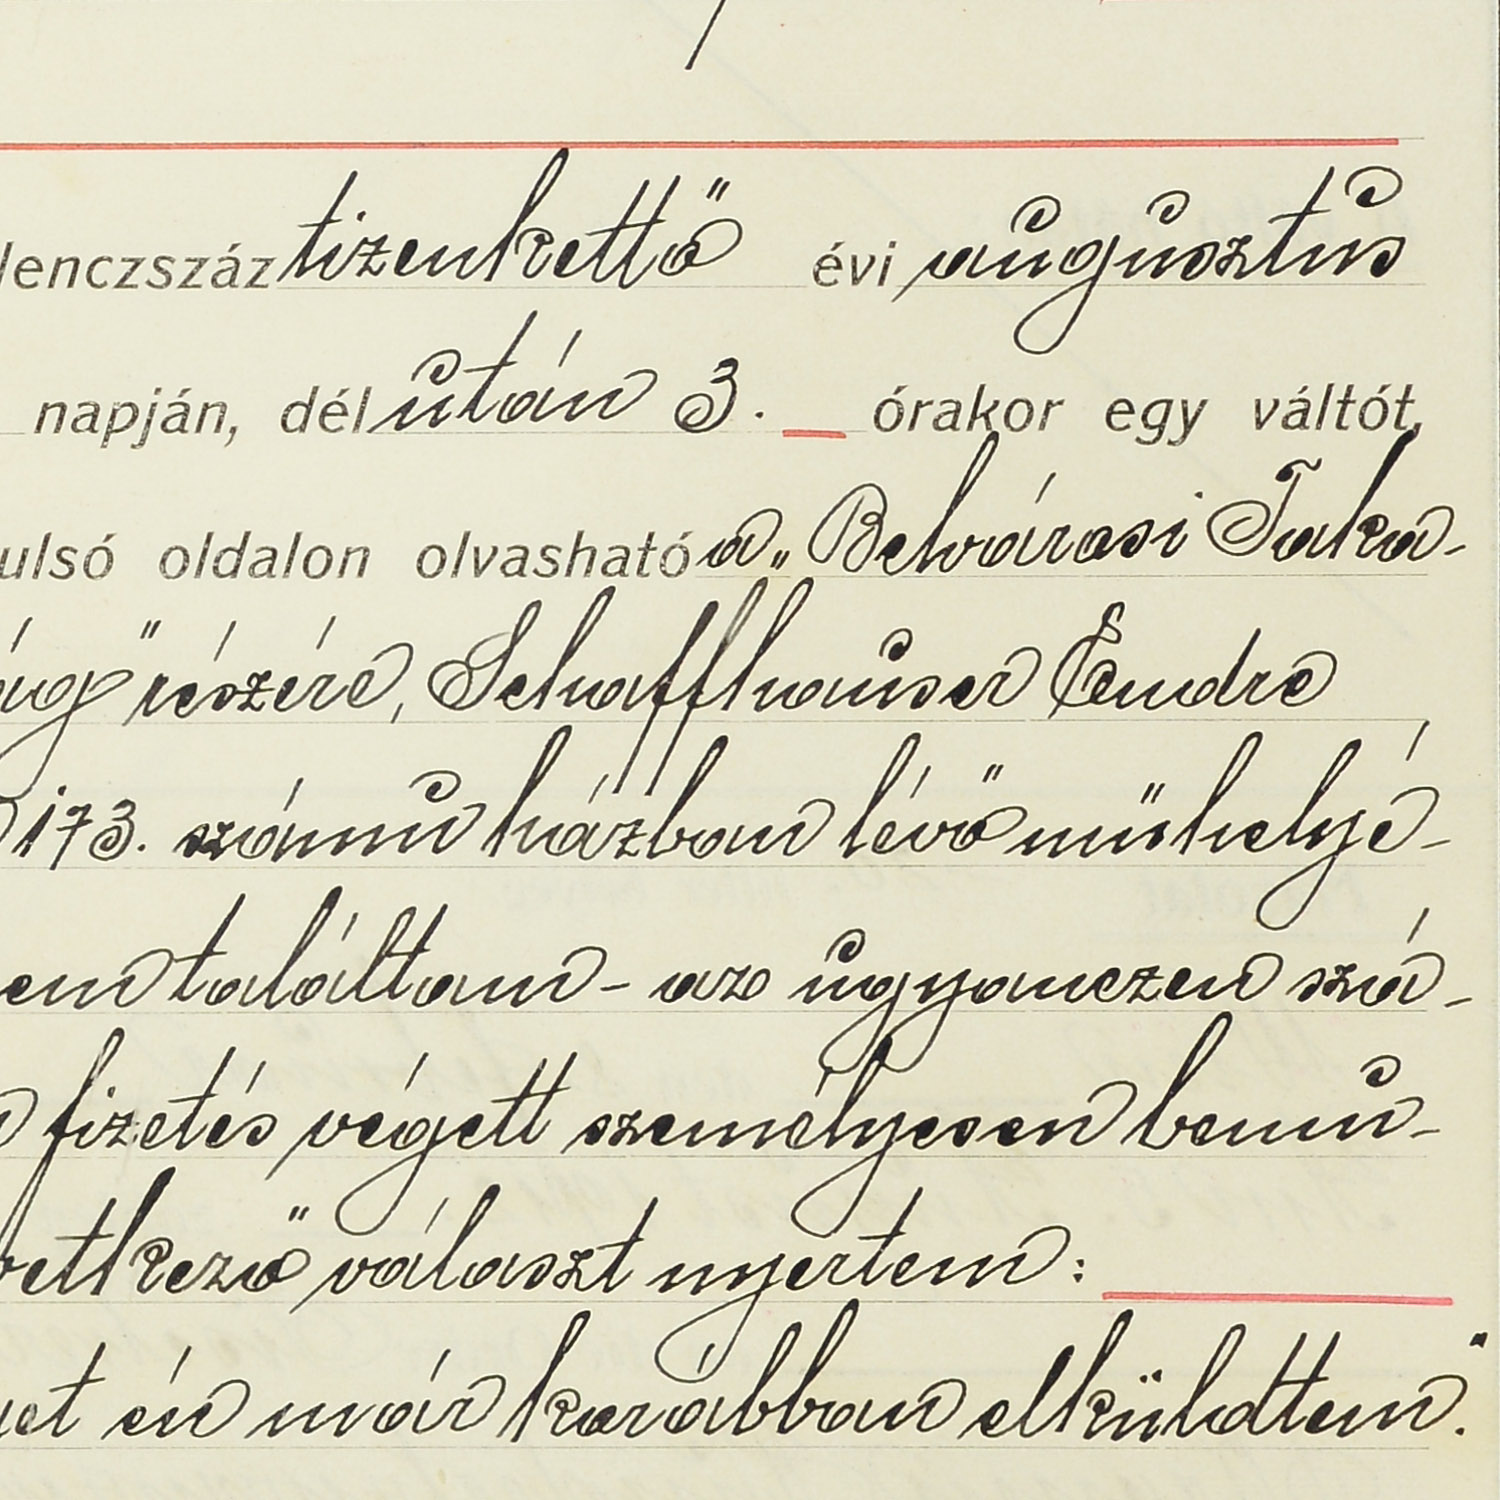 lenczszáz tizenkettő évi augusztus
napján, délután 3. órakor egy váltót,
ulsó oldalon olvasható a „Belvárosi Taka-
ág" részére, Schaffhauser Endre
173. számú házban lévő műhelyé-
em találtam - az ugyanezen szá-
fizetés végett személyesen bemu-
vetkező választ nyertem:
et én már korábban elküldtem."